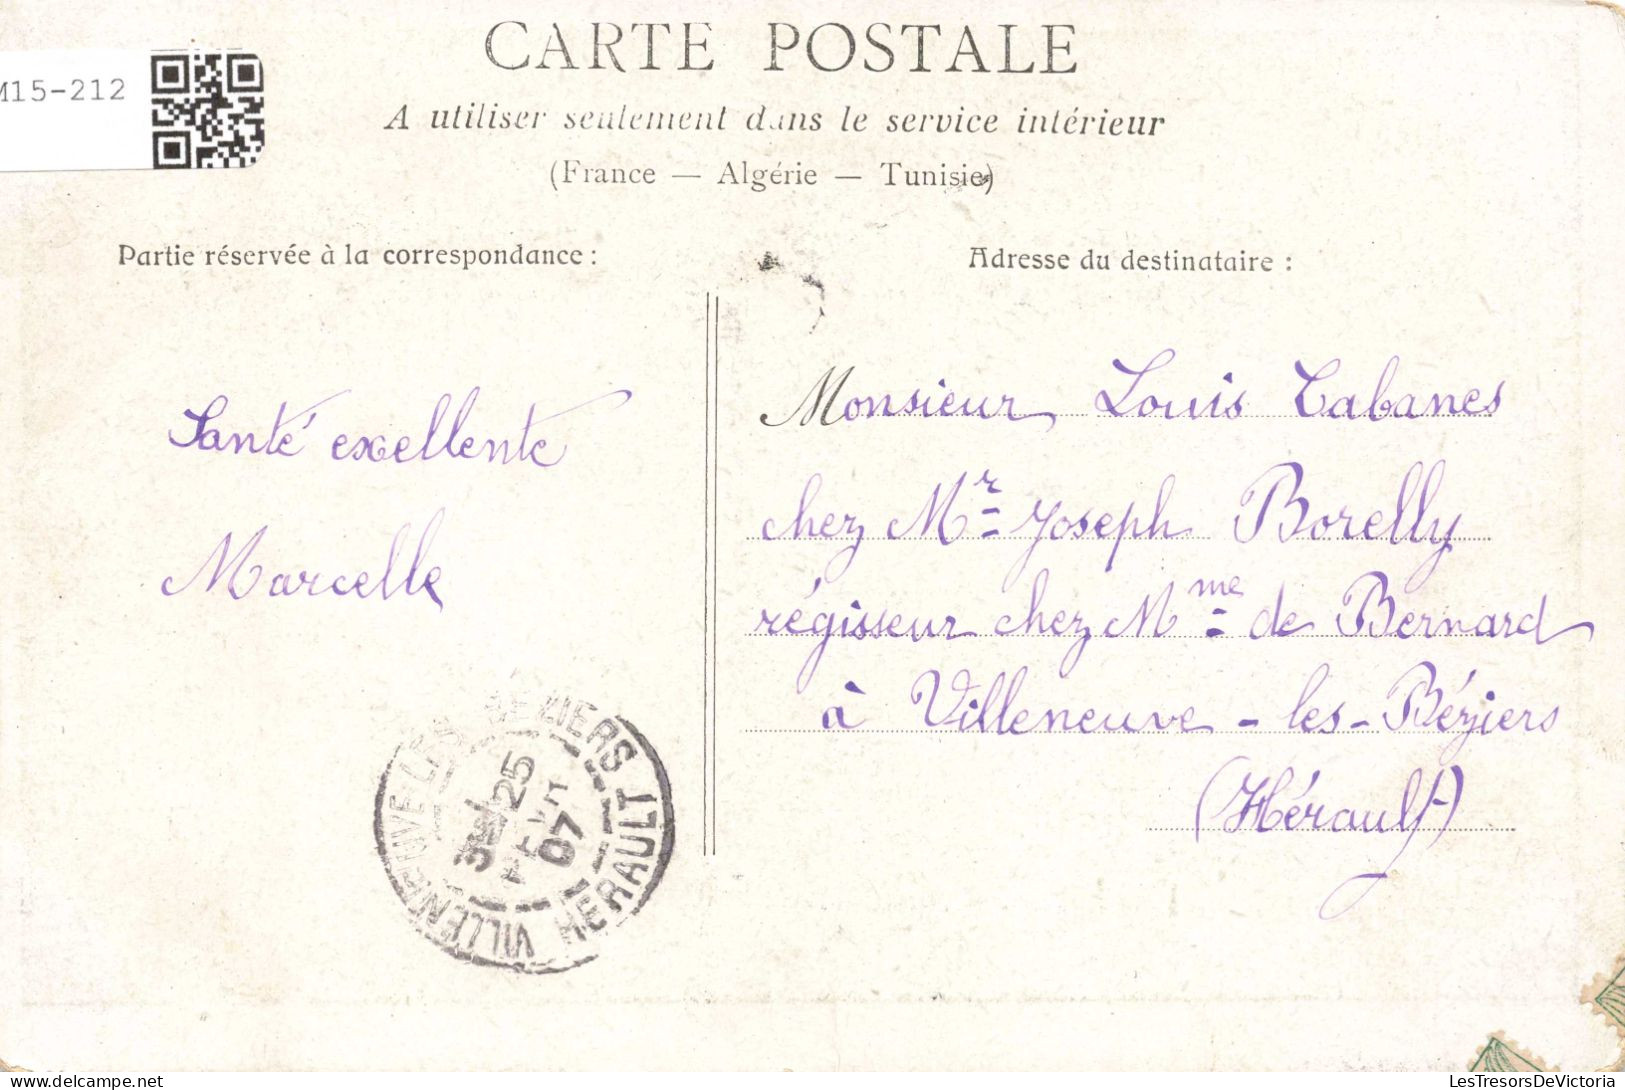 CARTE POSTALE
M15-212
A utiliser seulement dans le service intérieur
(France — Algérie — Tunisie)
Partie réservée à la correspondance :
Santé excellente
Marcelle
Adresse du destinataire :
Monsieur Louis Cabanes
chez Mr Joseph Borelly
régisseur chez Mme de Bernard
à Villeneuve - les - Béziers
(Hérault)
VILLENEUVE-LES-BEZIERS
25
07
HERAULT
LesTresorsDeVictoria